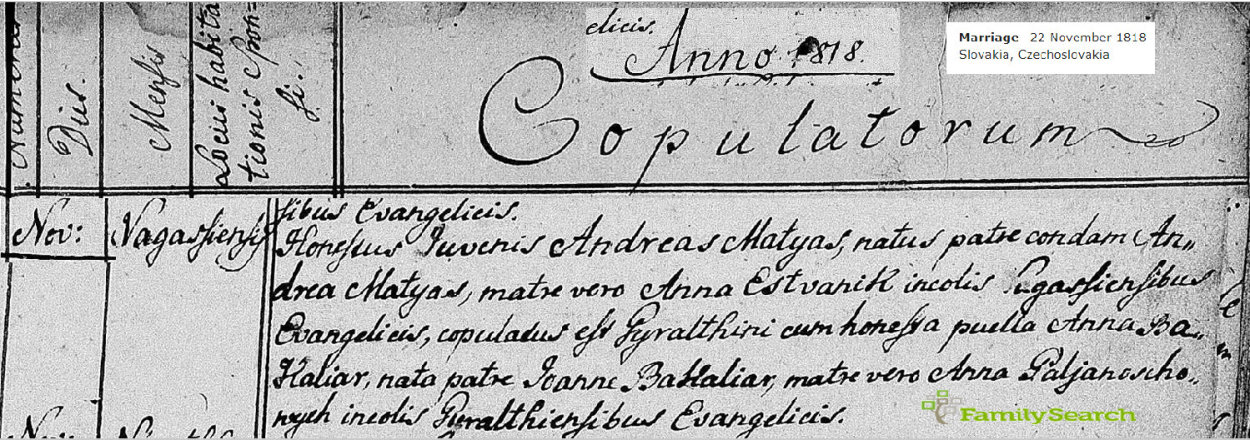 elicis.
Anno 1818.
Marriage 22 November 1818
Slovakia, Czechoslovakia
Numerus
Dies.
Mensis
Locus habita
tionis Spon=
si.
Copulatorum
sibus Evangelicis.
Nov:
Honestus Juvenis Andreas Matyas, natus patre condam An=
drea Matyas, matre vero Anna Estvanik incolis
Evangelicis, copulatus est Gyralthini cum honesta puella Anna Ba=
kaliar, nata patre Joanne Bakaliar, matre vero Anna Paljanoscho=
nych incolis Gyralthiensibus Evangelicis.
FamilySearch